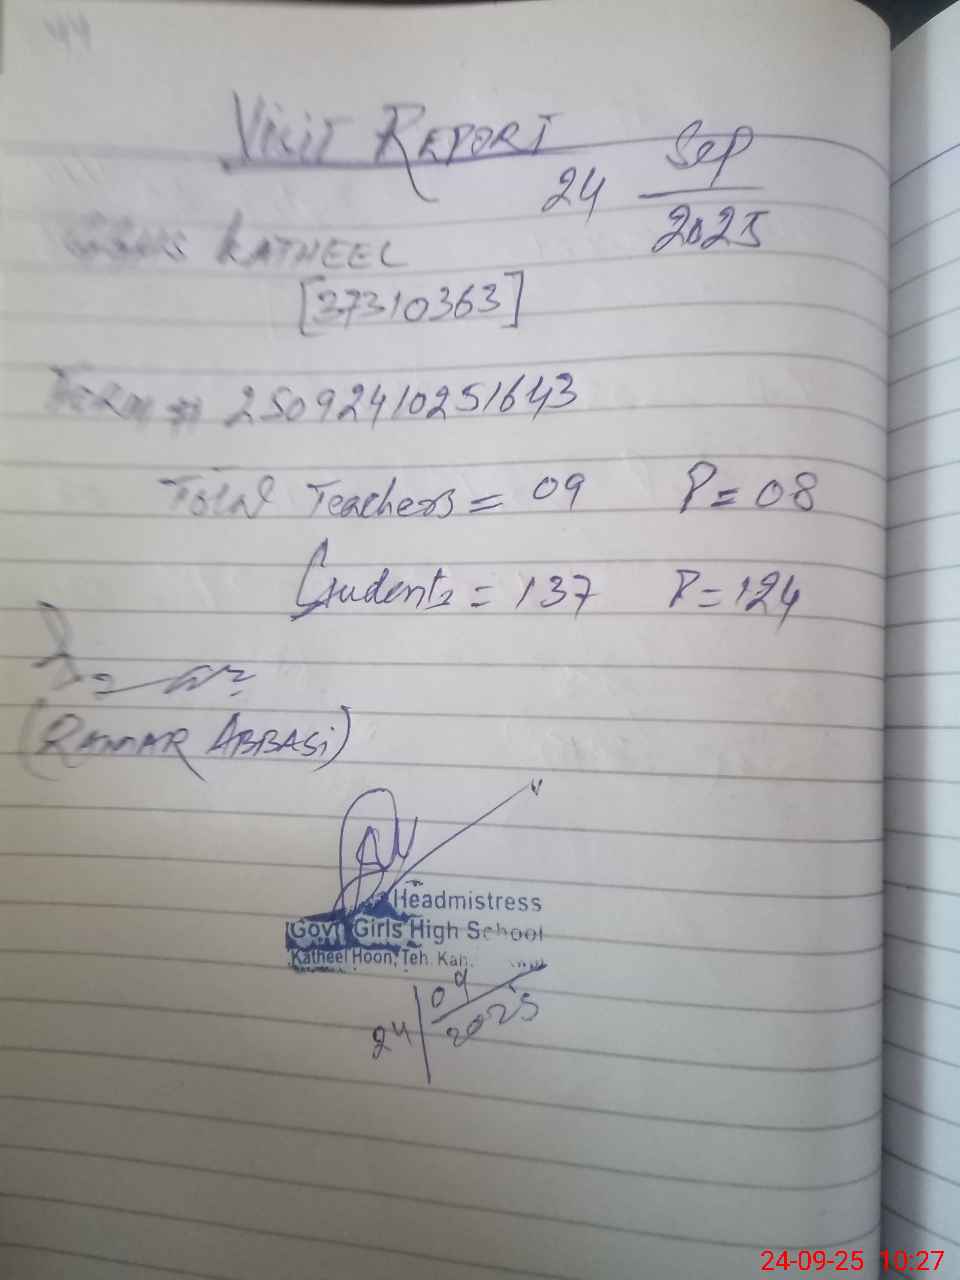 44
Visit REPORT
24 Sep
2025
GGHS KATHEEL
[37310363]
FERM # 25092410251643
Total Teachers = 09 P = 08
Students = 137 P = 124
ABBASi)
Headmistress
Govt Girls High School
Katheel Hoon, Teh. Kah.
24 09
2025
24-09-25 10:27